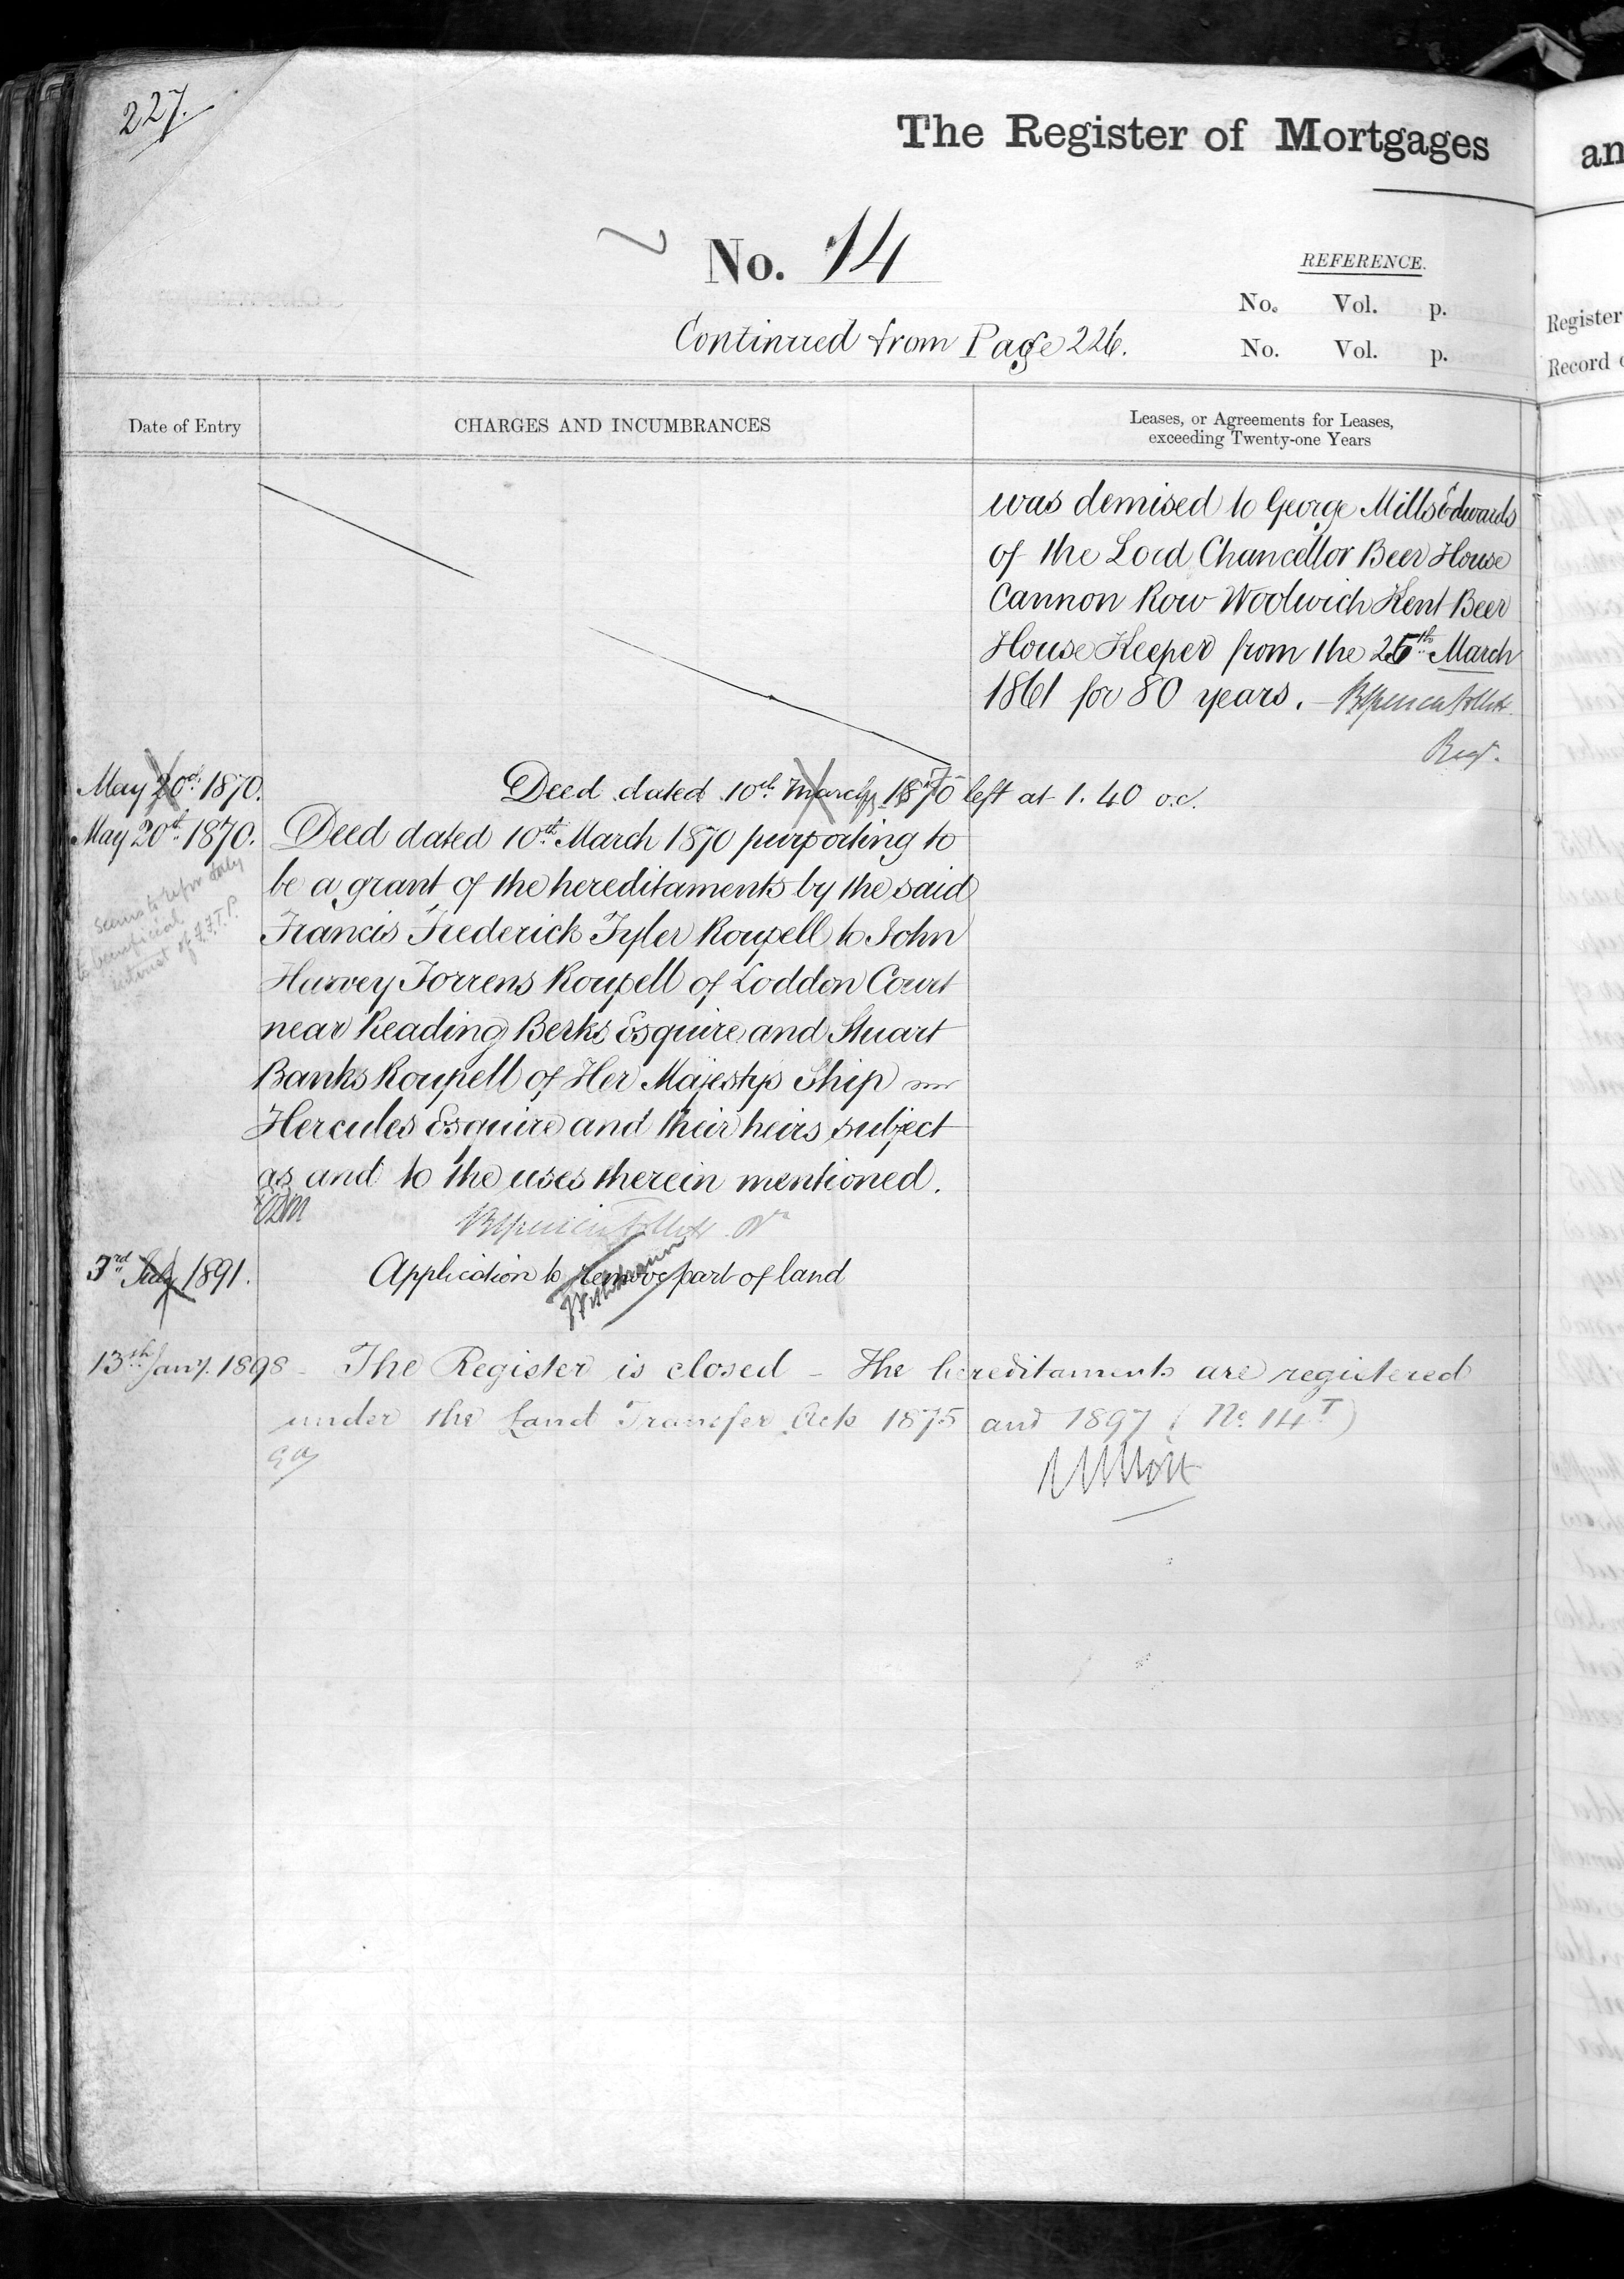 227.
The Register of Mortgages
an
No. 14
REFERENCE.
No. Vol. p.
No. Vol. p.
Register
Record
Continued from Page 226.
Date of Entry
CHARGES AND INCUMBRANCES
Leases, or Agreements for Leases,
exceeding Twenty-one Years
was demised to George Mills Edwards
of the Lord Chancellor Beer House
Cannon Row Woolwich Kent Beer
House Keeper from the 25th March
1861 for 80 years.
Regr.
May 20th 1870. Deed dated 10th March 1870 left at 1.40 o.c.
May 20th 1870. Deed dated 10th March 1870 purporting to
be a grant of the hereditaments by the said
Francis Frederick Tyler Roupell to John
Harvey Torrens Roupell of Loddon Court
near Reading Berks Esquire and Stuart
Banks Roupell of Her Majestys Ship
Hercules Esquire and their heirs subject
as and to the uses therein mentioned.
Seems to refer only
to beneficial
interest of F.F.T.R.
3rd July 1891. Application to remove part of land
Withdrawn
13th Jany. 1898 - The Register is closed - The hereditaments are registered
under the Land Transfer Acts 1875 and 1897 (No. 14T)